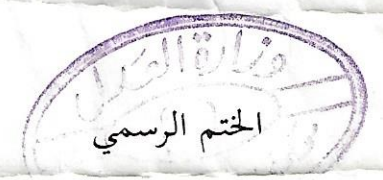 وزارة العدل
الختم الرسمي